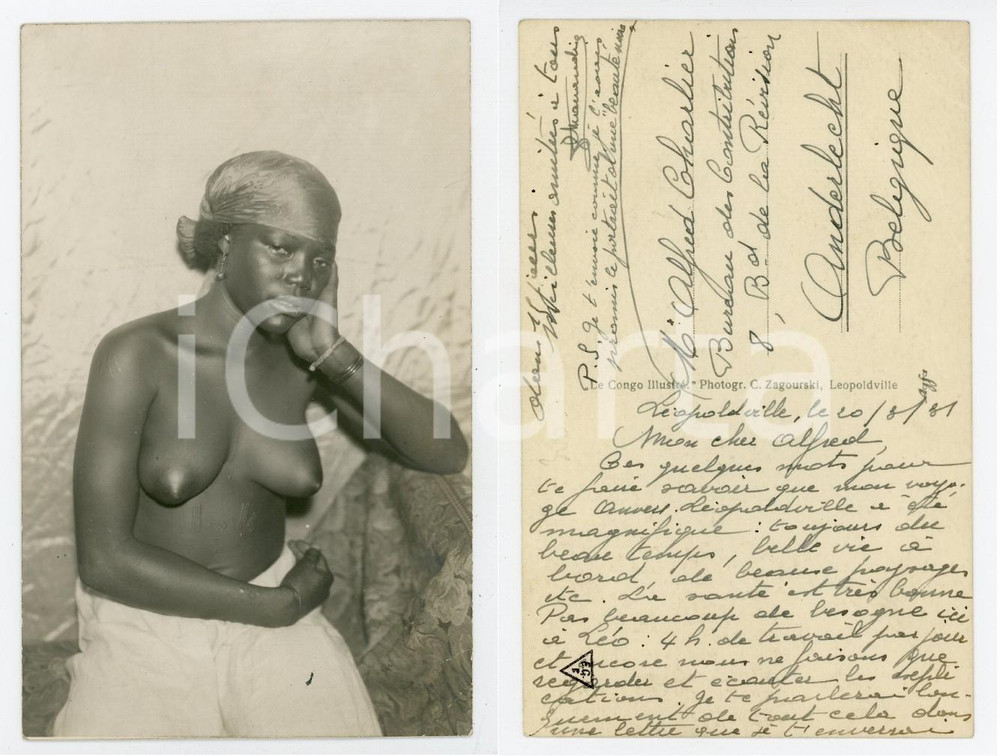 "Le Congo Illustré." Photogr. C. Zagourski, Leopoldville
Léopoldville, le 20/3/31
Mon cher Alfred,
Ces quelques mots pour
te faire savoir que mon voya-
ge Anvers-Léopoldville a été
magnifique : toujours du
beau temps, belle vie à
bord, de beaux paysages
etc. La santé est très bonne
Pas beaucoup de besogne ici
à Léo : 4 h. de travail par jour
et encore nous ne faisons que
regarder et écouter les expli
cations. Je te parlerai lon-
guement de tout cela dans
une lettre que je t'enverrai
dans
Meilleures amitiés à tous
P.S. Je t'envoie comme je l'avais
promis le portrait d'une "beauté" noire
Mr Alfred Charlier
Bureau des Contributions
8, Bd de la Révision
Anderlecht
Belgique
iChanza